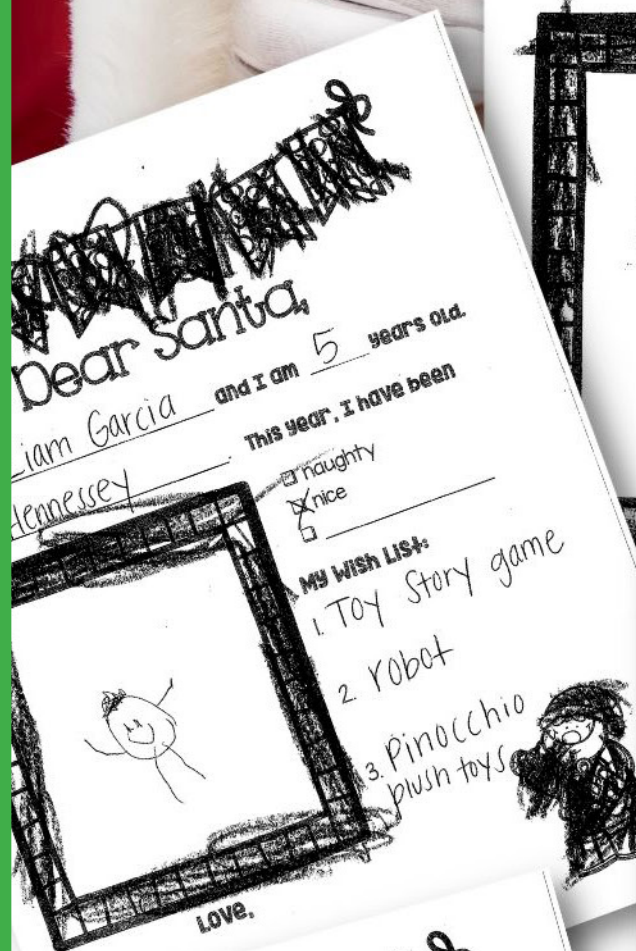 Dear Santa,
Liam Garcia and I am 5 years old.
Hennessey. This year, I have been
naughty
nice
My Wish List:
1. Toy Story game
2. robot
3. Pinocchio
plush toys
Love,